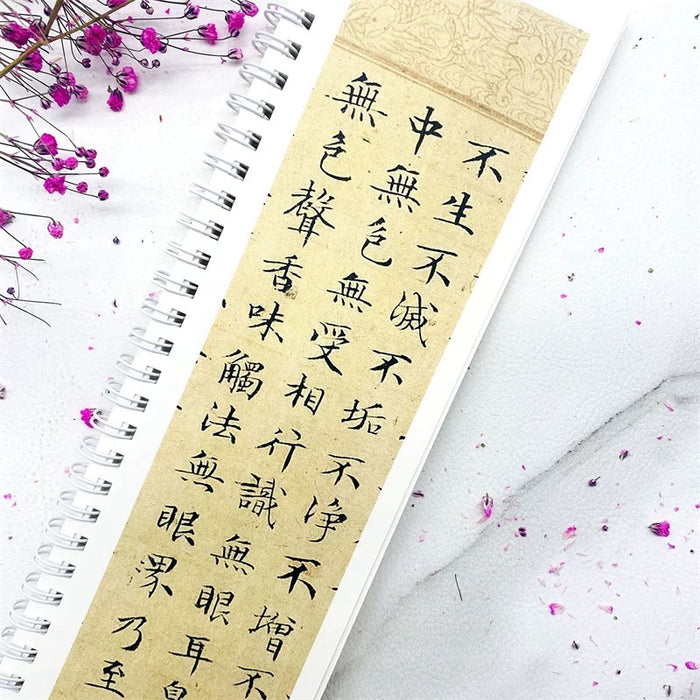 不生不滅不垢不净不增不
中無色無受相行識無眼耳鼻
無色聲香味觸法無眼界乃至